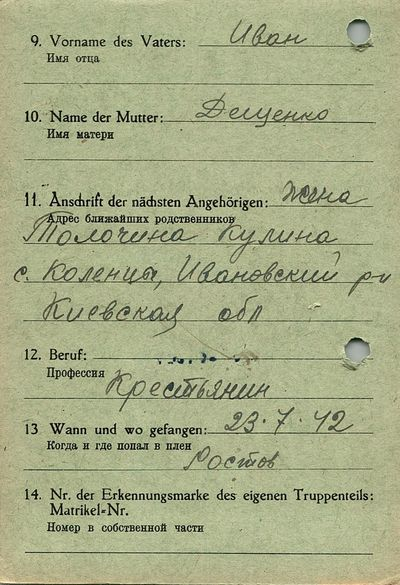 9. Vorname des Vaters: Иван
Имя отца
10. Name der Mutter: Дещенко
Имя матери
11. Anschrift der nächsten Angehörigen: жена
Адрес ближайших родственников
Толочина Кулина
с. Коленцы, Ивановский р-н
Киевская обл
12. Beruf:
Профессия
Крестьянин
13 Wann und wo gefangen: 23.7.42
Когда и где попал в плен
Ростов
14. Nr. der Erkennungsmarke des eigenen Truppenteils:
Matrikel-Nr.
Номер в собственной части